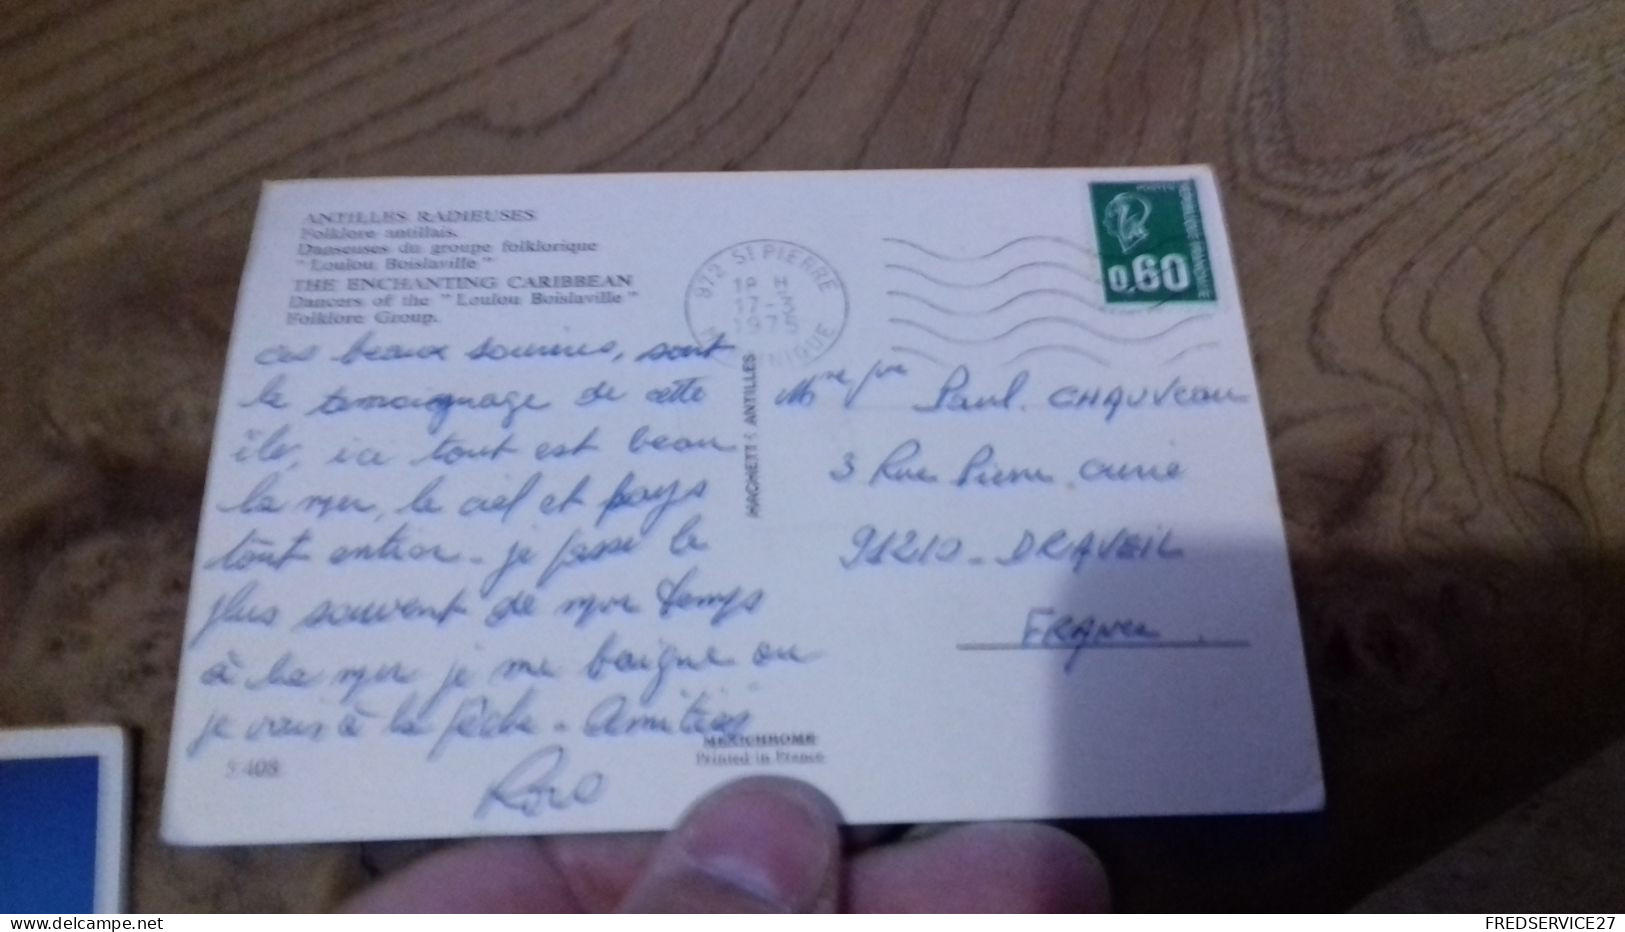 ANTILLES RADIEUSES
Folklore antillais.
Danseuses du groupe folklorique
"Loulou Boislaville"
THE ENCHANTING CARIBBEAN
Dancers of the "Loulou Boislaville"
Folklore Group.
ces beaux sourires, sont
le temoignage de cette
île, ici tout est beau
la mer, le ciel et pays
tout entier - je passe le
plus souvent de mon temps
à la mer je me baigne ou
je vais à la pêche - Amitiés
5 408
MEXICHROME
Printed in France
HACHETTE ANTILLES
972 ST PIERRE
18 H
17-3
1975
MARTINIQUE
POSTES
REPUBLIQUE FRANCAISE
0,60
Paul. CHAUVEAU
3 Rue Pierre Curie
91210 - DRAVEIL
FRANCE.
FREDSERVICE27